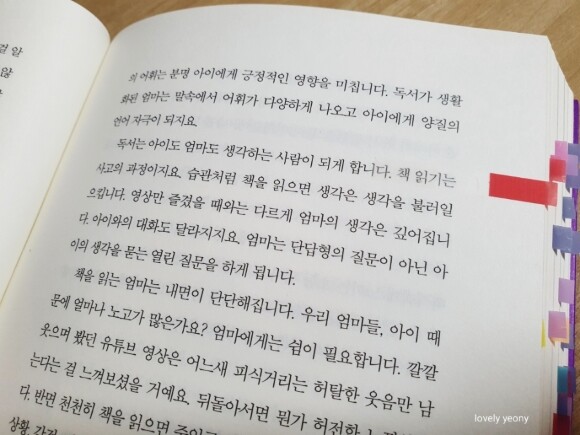 걸 알
않
의 어휘는 분명 아이에게 긍정적인 영향을 미칩니다. 독서가 생활
화된 엄마는 말속에서 어휘가 다양하게 나오고 아이에게 양질의
언어 자극이 되지요.
독서는 아이도 엄마도 생각하는 사람이 되게 합니다. 책 읽기는
사고의 과정이지요. 습관처럼 책을 읽으면 생각은 생각을 불러일
으킵니다. 영상만 즐겼을 때와는 다르게 엄마의 생각은 깊어집니
다. 아이와의 대화도 달라지지요. 엄마는 단답형의 질문이 아닌 아
이의 생각을 묻는 열린 질문을 하게 됩니다.
책을 읽는 엄마는 내면이 단단해집니다. 우리 엄마들, 아이 때
문에 얼마나 노고가 많은가요? 엄마에게는 쉼이 필요합니다. 깔깔
웃으며 봤던 유튜브 영상은 어느새 피식거리는 허탈한 웃음만 남
는다는 걸 느껴보셨을 거예요. 뒤돌아서면 뭔가 허전한
다. 반면 천천히 책을 읽으면
상황,
lovely yeony